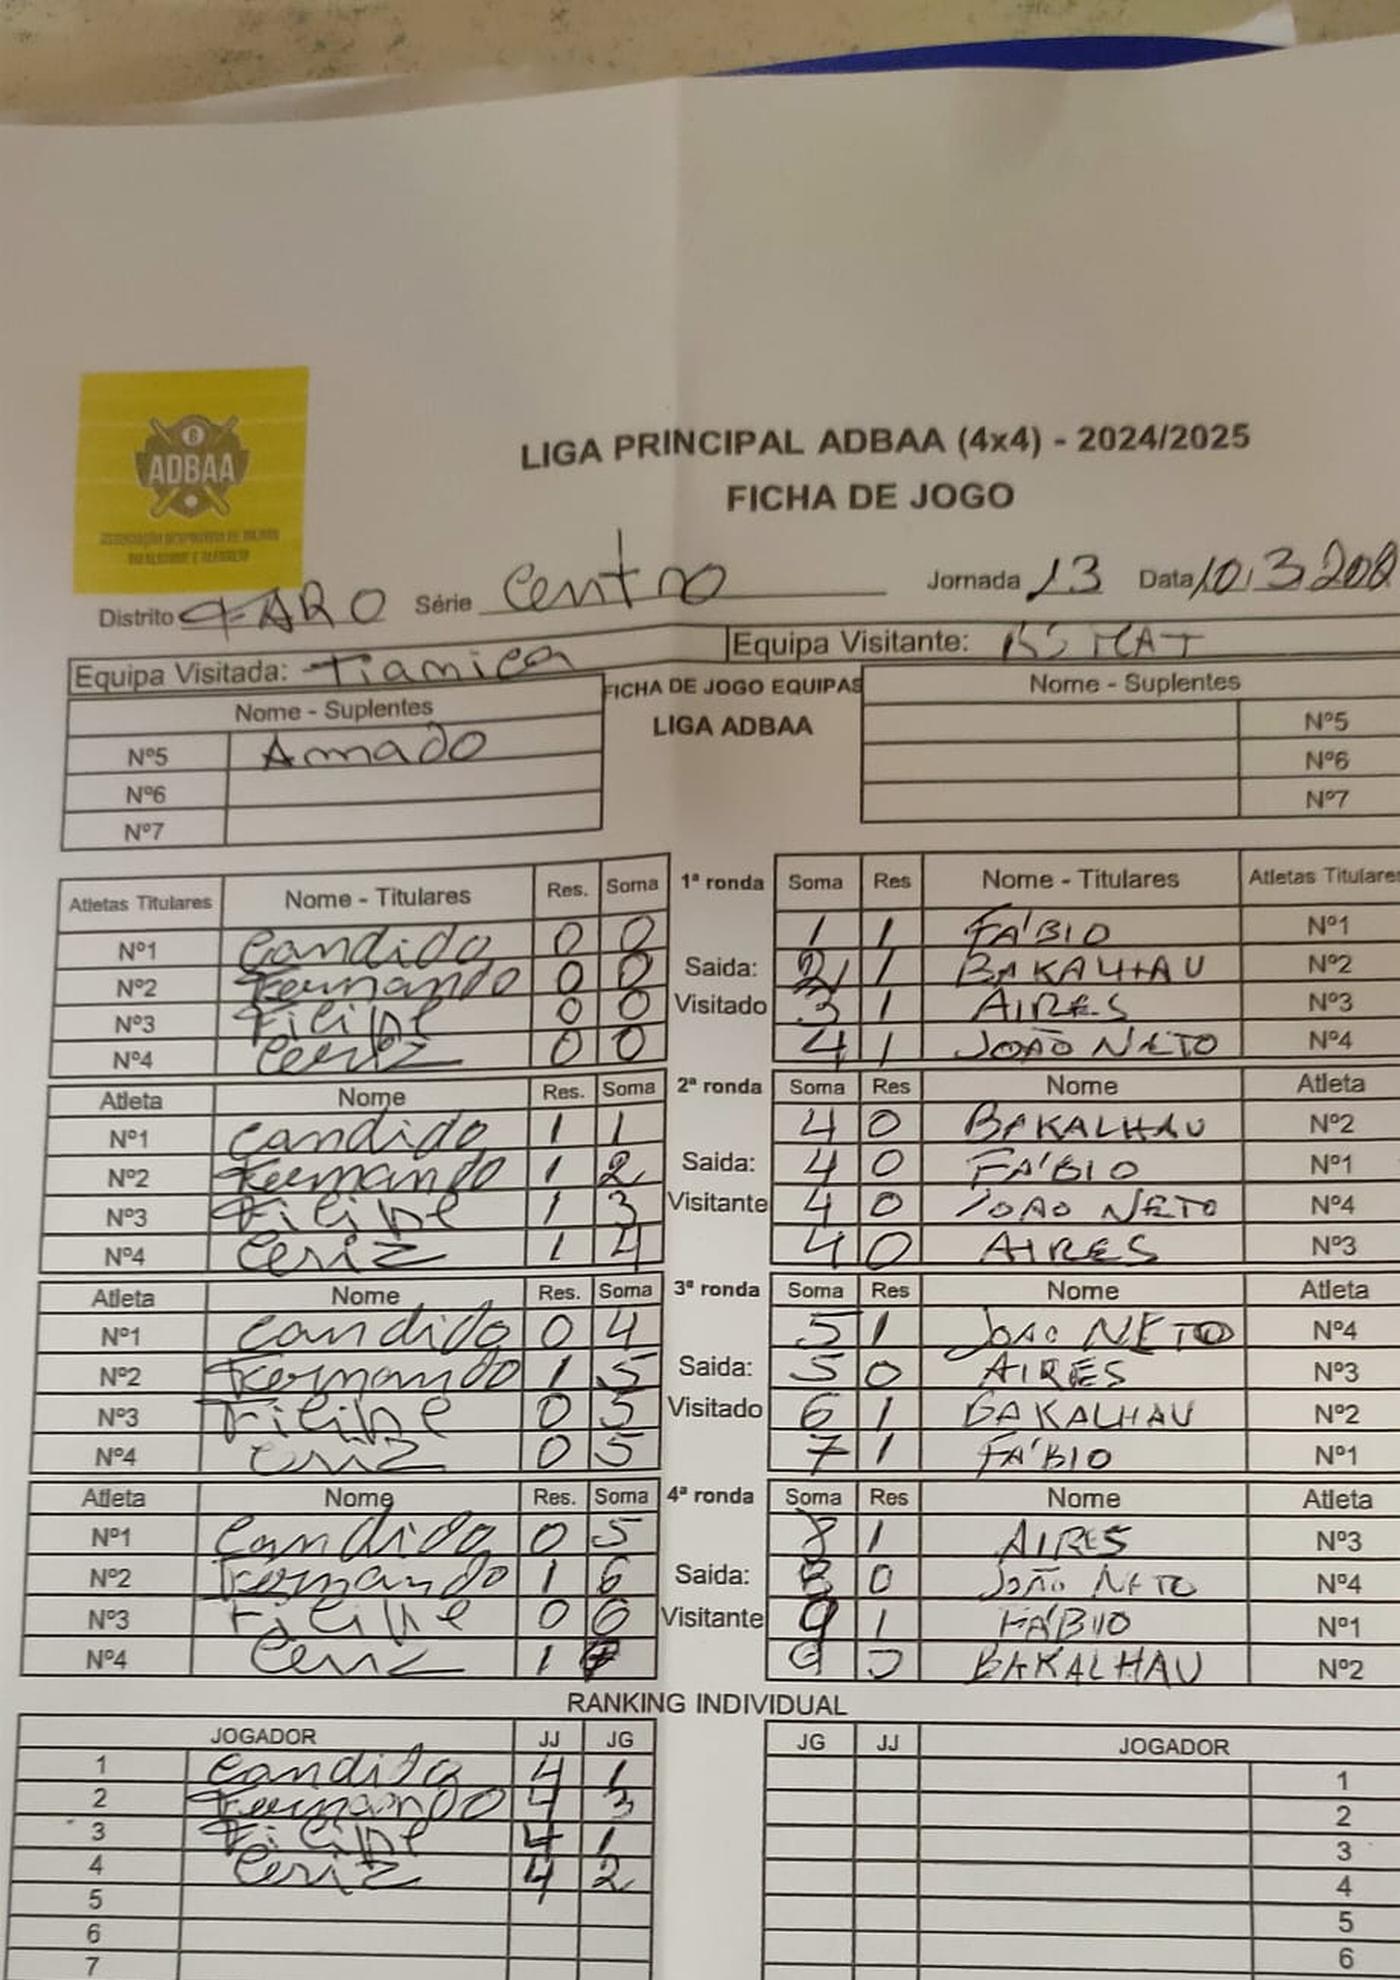 ADBAA
LIGA PRINCIPAL ADBAA (4x4) - 2024/2025
FICHA DE JOGO
Distrito FARO Série Centro Jornada 13 Data 10/3/
Equipa Visitada: Tiamica Equipa Visitante:
Nome - Suplentes FICHA DE JOGO EQUIPAS Nome - Suplentes
LIGA ADBAA
Nº5 Amado Nº5
Nº6 Nº6
Nº7 Nº7
Atletas Titulares Nome - Titulares Res. Soma 1ª ronda Soma Res Nome - Titulares Atletas Titulares
Nº1 Candido 0 0 1 1 FÁBIO Nº1
Nº2 Fernando 0 0 Saida: 2 1 BAKALHAU Nº2
Nº3 Filipe 0 0 Visitado 3 1 AIRES Nº3
Nº4 Ceriz 0 0 4 1 JOÃO NETO Nº4
Atleta Nome Res. Soma 2ª ronda Soma Res Nome Atleta
Nº1 Candido 1 1 4 0 BAKALHAU Nº2
Nº2 Fernando 1 2 Saida: 4 0 FÁBIO Nº1
Nº3 Filipe 1 3 Visitante 4 0 JOAO NETO Nº4
Nº4 Ceriz 1 4 4 0 AIRES Nº3
Atleta Nome Res. Soma 3ª ronda Soma Res Nome Atleta
Nº1 Candido 0 4 5 1 JOAO NETO Nº4
Nº2 Fernando 1 5 Saida: 5 0 AIRES Nº3
Nº3 Filipe 0 5 Visitado 6 1 BAKALHAU Nº2
Nº4 Ceriz 0 5 7 1 FÁBIO Nº1
Atleta Nome Res. Soma 4ª ronda Soma Res Nome Atleta
Nº1 Candido 0 5 8 1 AIRES Nº3
Nº2 Fernando 1 6 Saida: 8 0 JOÃO NETO Nº4
Nº3 Filipe 0 6 Visitante 9 1 FÁBIO Nº1
Nº4 Ceriz 1 7 9 0 BAKALHAU Nº2
RANKING INDIVIDUAL
JOGADOR JJ JG JG JJ JOGADOR
1 Candido 4 1 1
2 Fernando 4 3 2
3 Filipe 4 1 3
4 Ceriz 4 2 4
5 5
6 6
7